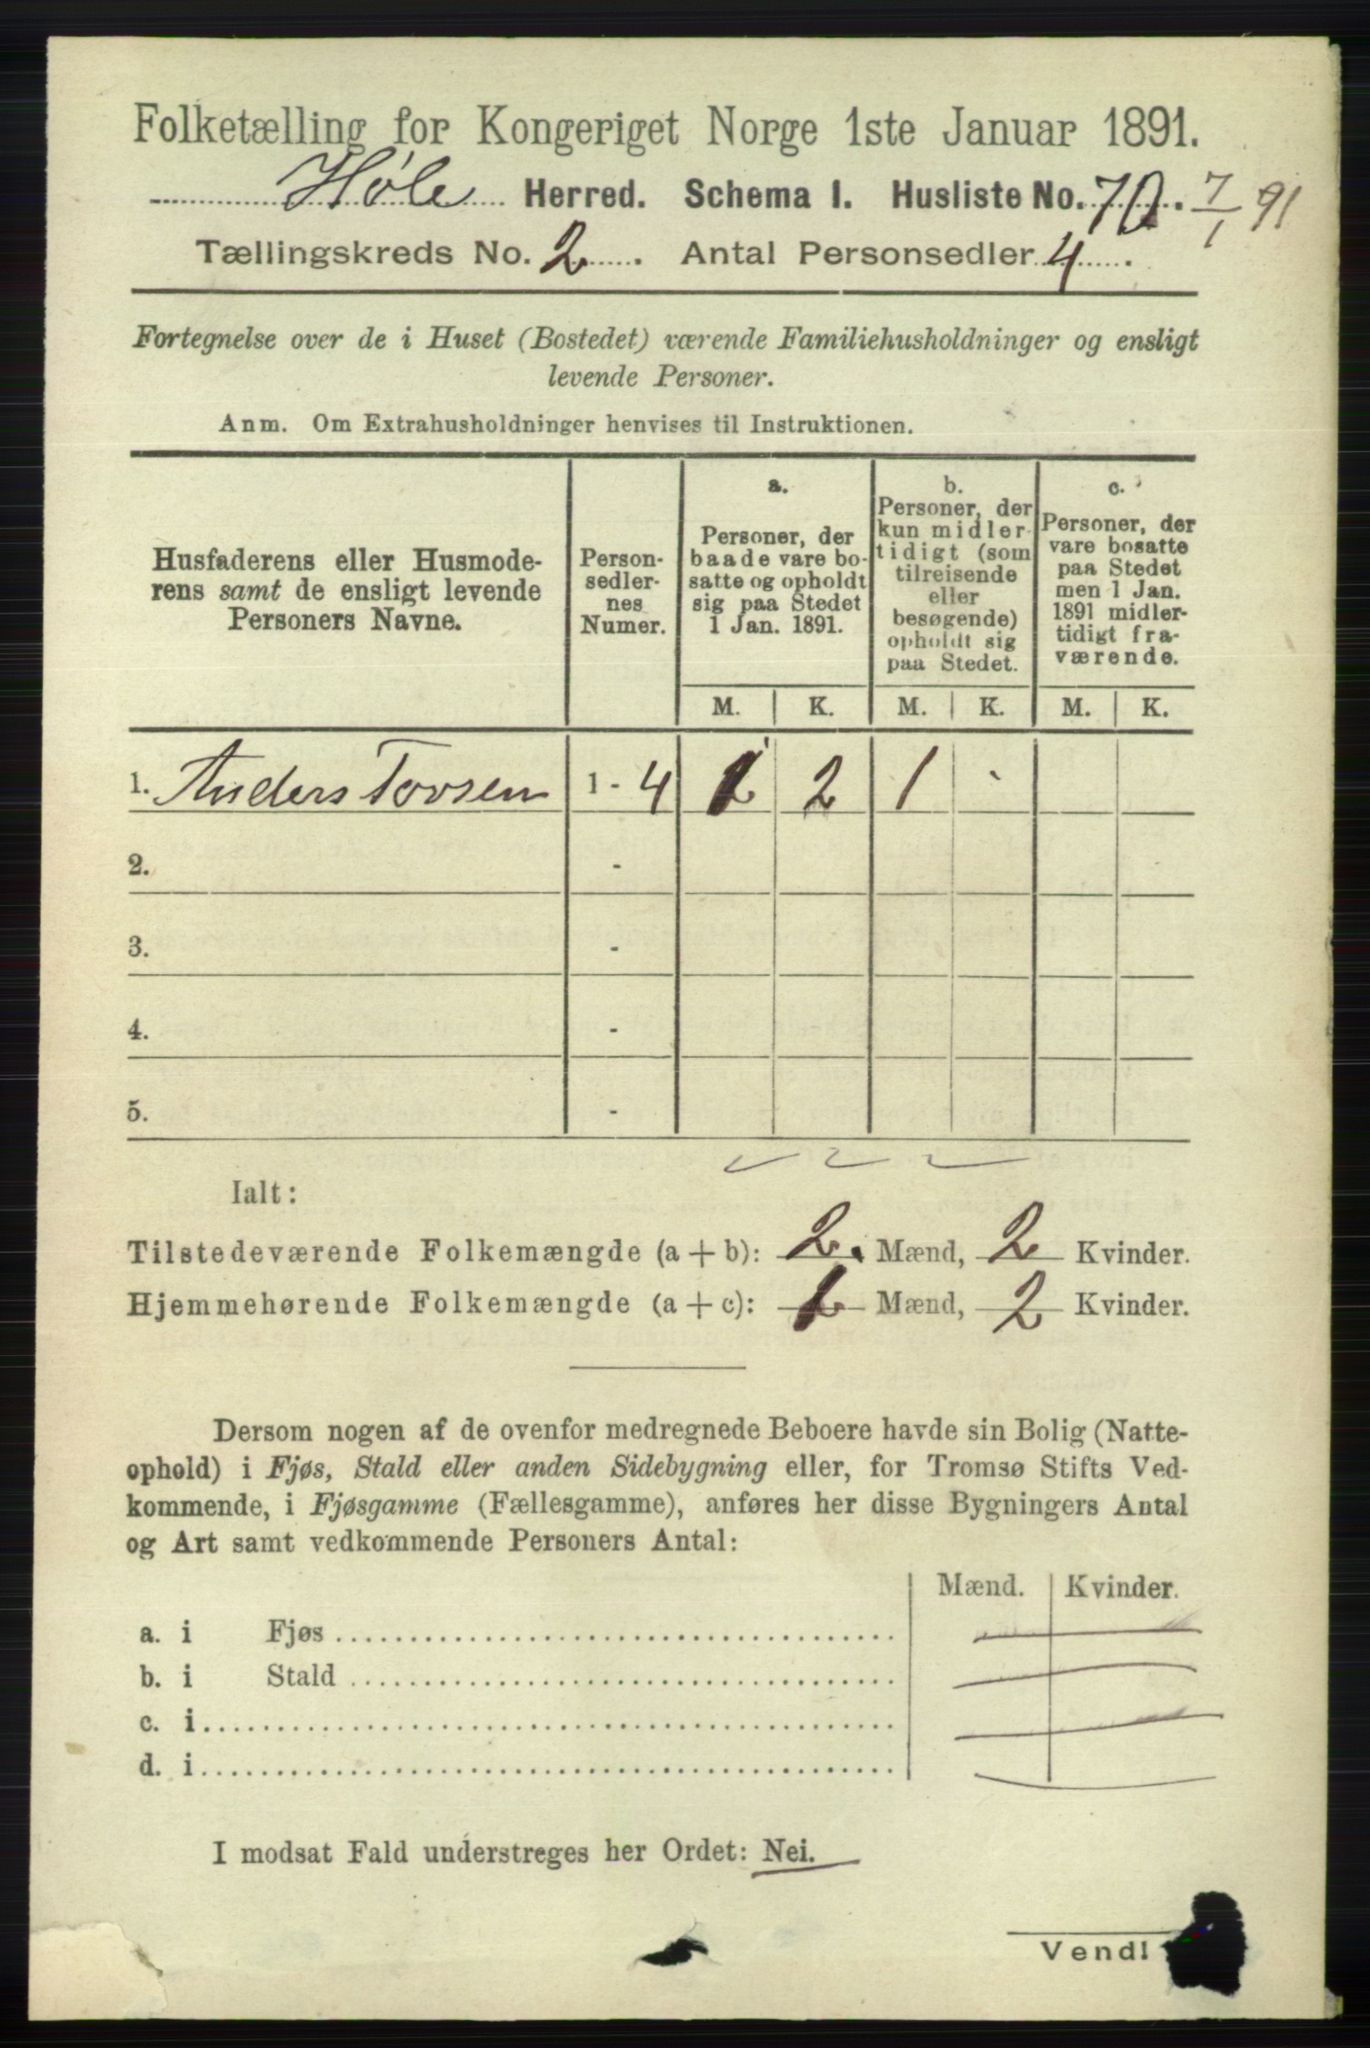 Folketælling for Kongeriget Norge 1ste Januar 1891.
Høle Herred. Schema I. Husliste No. 70. 7/1 91
Tællingskreds No. 2. Antal Personsedler 4.
Fortegnelse over de i Huset (Bostedet) værende Familiehusholdninger og ensligt
levende Personer.
Anm. Om Extrahusholdninger henvises til Instruktionen.
Husfaderens eller Husmode-
rens samt de ensligt levende
Personers Navne.
Person-
sedler-
nes
Numer.
a.
Personer, der
baade vare bo-
satte og opholdt
sig paa Stedet
1 Jan. 1891.
b.
Personer, der
kun midler-
tidigt (som
tilreisende
eller
besøgende)
opholdt sig
paa Stedet.
c.
Personer, der
vare bosatte
paa Stedet
men 1 Jan.
1891 midler-
tidigt fra-
værende.
M. K. M. K. M. K.
1. Anders Tovsen 1 - 4 1 2 1 -
2. -
3. -
4. -
5. -
Ialt:
Tilstedeværende Folkemængde (a + b): 2. Mænd, 2 Kvinder.
Hjemmehørende Folkemængde (a + c): 1 Mænd, 2 Kvinder.
Dersom nogen af de ovenfor medregnede Beboere havde sin Bolig (Natte-
ophold) i Fjøs, Stald eller anden Sidebygning eller, for Tromsø Stifts Ved-
kommende, i Fjøsgamme (Fællesgamme), anføres her disse Bygningers Antal
og Art samt vedkommende Personers Antal:
Mænd. Kvinder.
a. i Fjøs
b. i Stald
c. i
d. i
I modsat Fald understreges her Ordet: Nei.
Vend!